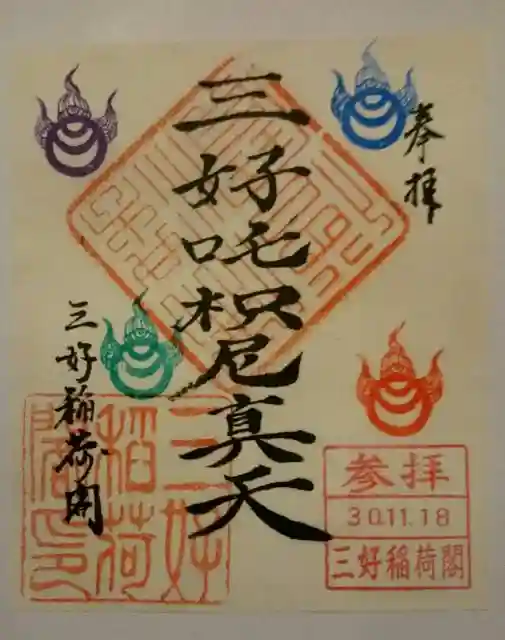 奉拝
三好吒枳尼真天
三好稲荷閣
三好
稲荷
閣印
参拝
30.11.18
三好稲荷閣